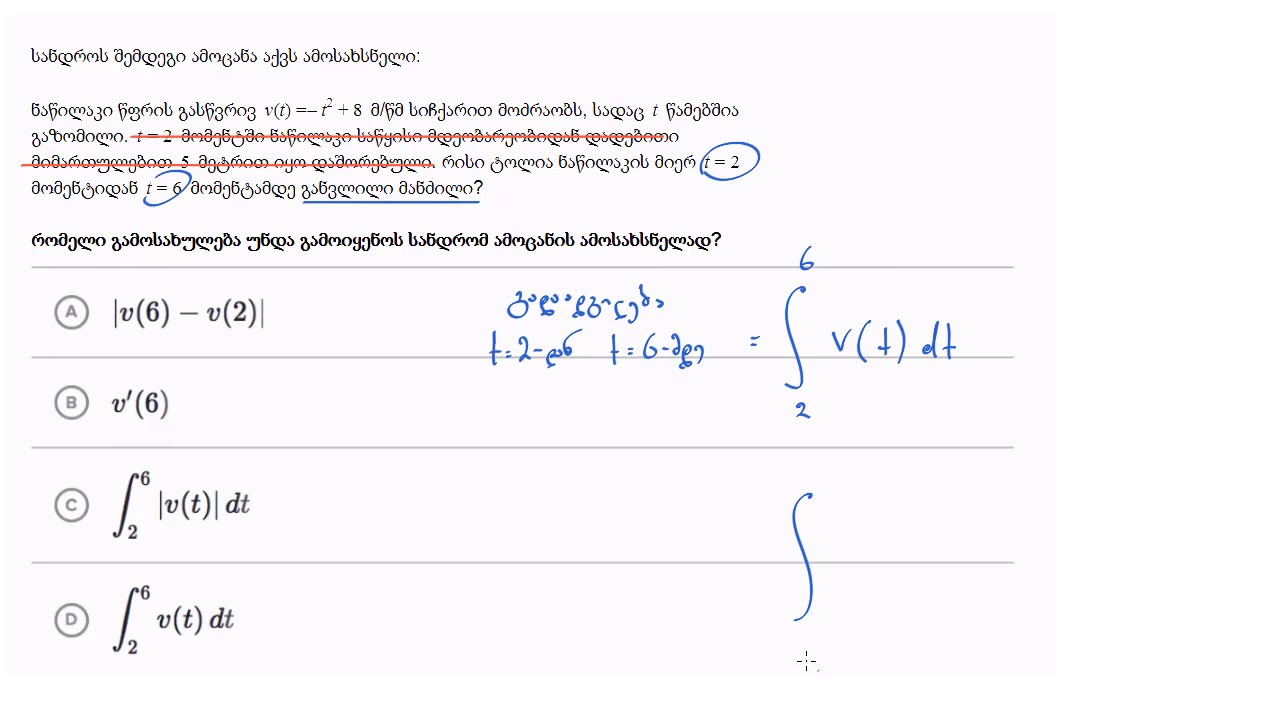 სანდროს შემდეგი ამოცანა აქვს ამოსახსნელი:
ნაწილაკი წფრის გასწვრივ v(t) =– t² + 8 მ/წმ სიჩქარით მოძრაობს, სადაც t წამებშია
გაზომილი. t = 2 მომენტში ნაწილაკი საწყისი მდეობარეობიდან დადებითი
მიმართულებით 5 მეტრით იყო დაშორებული. რისი ტოლია ნაწილაკის მიერ t = 2
მომენტიდან t = 6 მომენტამდე განვლილი მანძილი?
რომელი გამოსახულება უნდა გამოიყენოს სანდრომ ამოცანის ამოსახსნელად?
A |v(6) − v(2)|
B v′(6)
C ∫₂⁶ |v(t)| dt
D ∫₂⁶ v(t) dt
გადაადგილება
t=2-დან t=6-მდე = ∫₂⁶ v(t) dt
∫